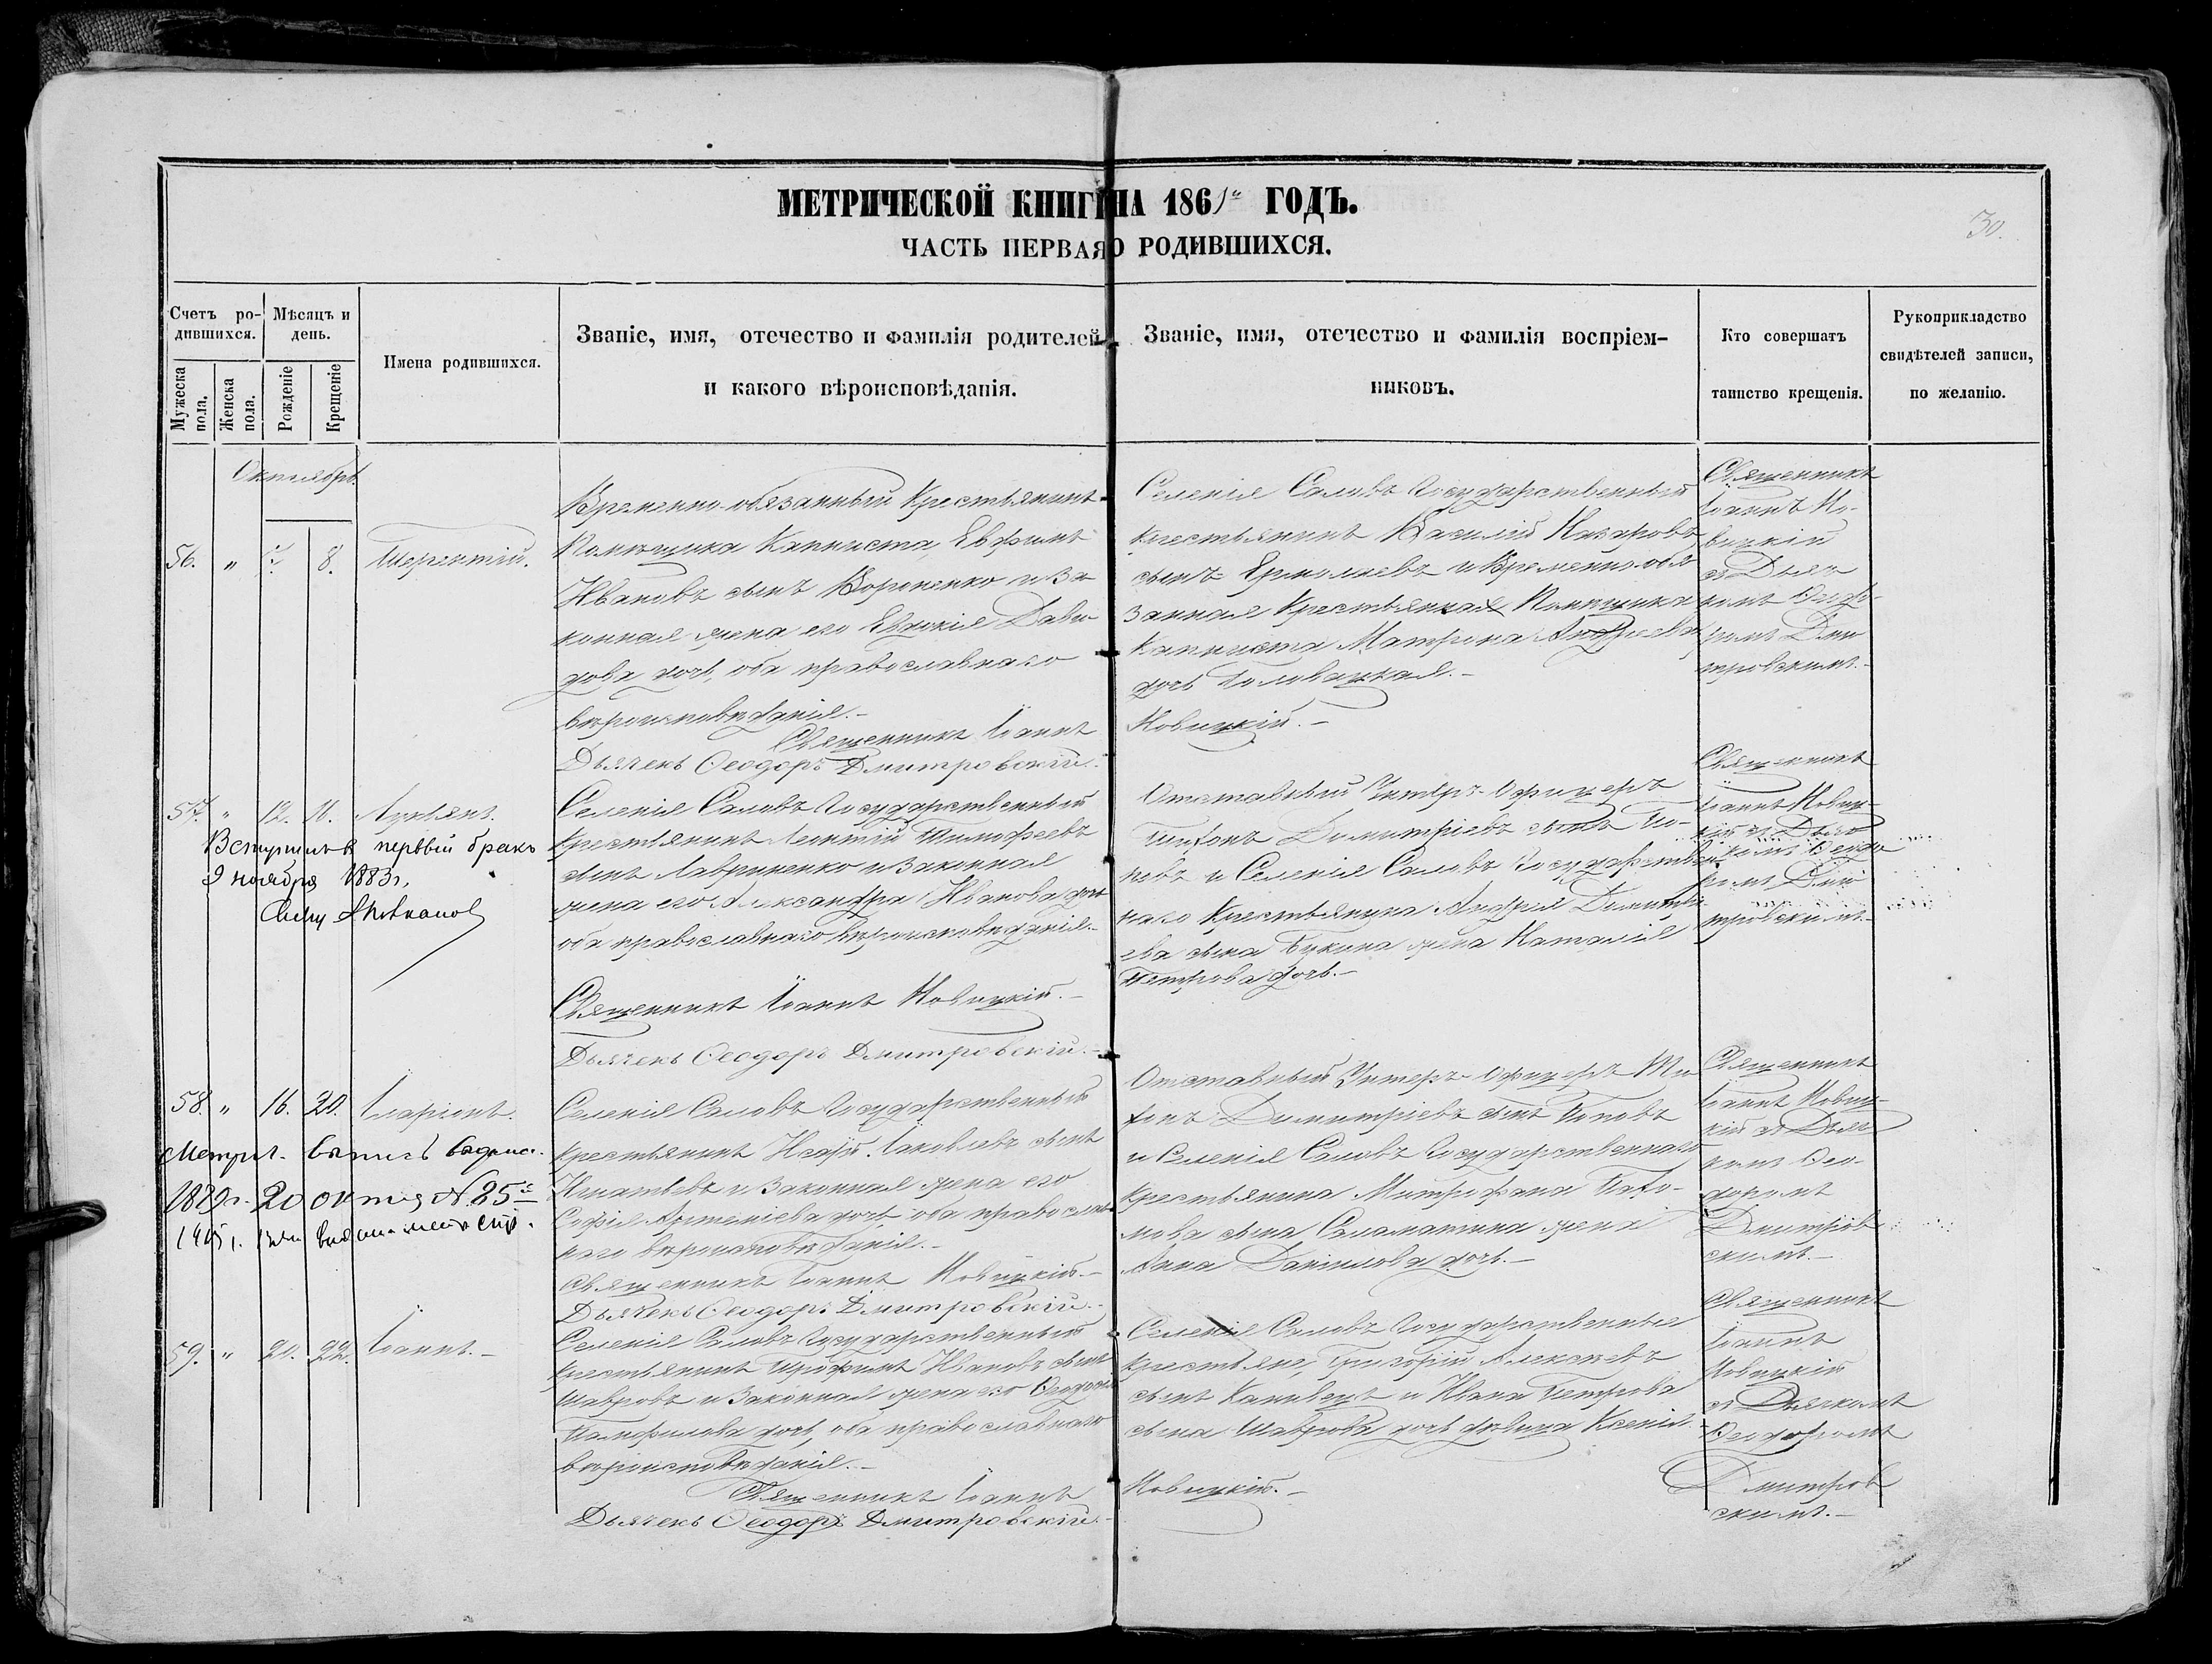 МЕТРИЧЕСКОЙ КНИГИ НА 1861й ГОДЪ.
ЧАСТЬ ПЕРВАЯ О РОДИВШИХСЯ.
30.
Счетъ ро-
дившихся.
Мужеска пола.
Женска пола.
Мѣсяцъ и
день.
Рожденіе
Крещеніе
Имена родившихся.
Званіе, имя, отечество и фамилія родителей
и какого вѣроисповѣданія.
Званіе, имя, отечество и фамилія воспріем-
никовъ.
Кто совершатъ
таинство крещенія.
Рукоприкладство
свидѣтелей записи,
по желанію.
Октябрь
56. " 8. Терентій.
Временно-обязанный Крестьянинъ
Помѣщика Капниста, Евфимъ
Ивановъ сынъ Вороненко и за-
конная жена его Евдокія Дави-
дова дочь, оба православнаго
вѣроисповѣданія.-
Священникъ Іоаннъ
Дьячекъ Ѳеодоръ Дмитровскій.
Селенія Саловъ Государственный
крестьянинъ Василій Назаровъ
сынъ Ермолаевъ и Временно-обя-
занная Крестьянка Помѣщика
Капниста Матрона Андреева
дочь Головацкая.-
Новицкій.-
Священникъ
Іоаннъ Но-
вицкій
съ Дья-
комъ Ѳеодо-
ромъ Дми-
тровскимъ.-
57. " 12. Лукіянъ.
Вступилъ въ первый бракъ
9 ноября 1883 г.
Селенія Саловъ Государственный
Крестьянинъ Леонтій Тимофеевъ
сынъ Лавриненко и Законная
жена его Александра Иванова дочь
оба православнаго вѣроисповѣданія.-
Священникъ Іоаннъ Новицкій.-
Дьячекъ Ѳеодоръ Дмитровскій.-
Отставный Унтеръ-Офицеръ
Тихонъ Димитріевъ сынъ По-
повъ и Селенія Саловъ Государствен-
наго Крестьянина Андрея Димитрі-
ева сына Букина жена Наталія
Петрова дочь.-
Священникъ
Іоаннъ Новиц-
кій съ Дьяч-
комъ Ѳеодо-
ромъ Дми-
тровскимъ.-
58. " 16. 20. Іларіонъ.
Метрич. выпись выдана
20 окт. № 25
Селенія Саловъ Государственный
крестьянинъ Іаковлевъ сынъ
Игнатьевъ и Законная жена его
Софія Артеміева дочь, оба православ-
наго вѣроисповѣданія.-
Священникъ Іоаннъ Новицкій.-
Дьячекъ Ѳеодоръ Дмитровскій.-
Отставный Унтеръ-Офицеръ Ти-
хонъ Димитріевъ сынъ Поповъ
и Селенія Саловъ Государственнаго
крестьянина Митрофана Пахо-
мова сына Саламатина жена
Анна Данилова дочь.-
Священникъ
Іоаннъ Новиц-
кій съ Дьяч-
комъ Ѳео-
доромъ
Дмитров-
скимъ.-
59. " 21. 22. Іоаннъ.-
Селенія Саловъ Государственный
крестьянинъ Трофимъ Ивановъ сынъ
Шавровъ и Законная жена его Ѳеодосія
Памфилова дочь, оба православнаго
вѣроисповѣданія.-
Священникъ Іоаннъ
Дьячекъ Ѳеодоръ Дмитровскій.-
Селенія Саловъ Государственные
крестьяне, Григорій Алексеевъ
сынъ Канивецъ и Ивана Петрова
сына Шаврова дочь дѣвица Ксенія.-
Новицкій.-
Священникъ
Іоаннъ
Новицкій
съ Дьячкомъ
Ѳеодоромъ
Дмитров-
скимъ.-